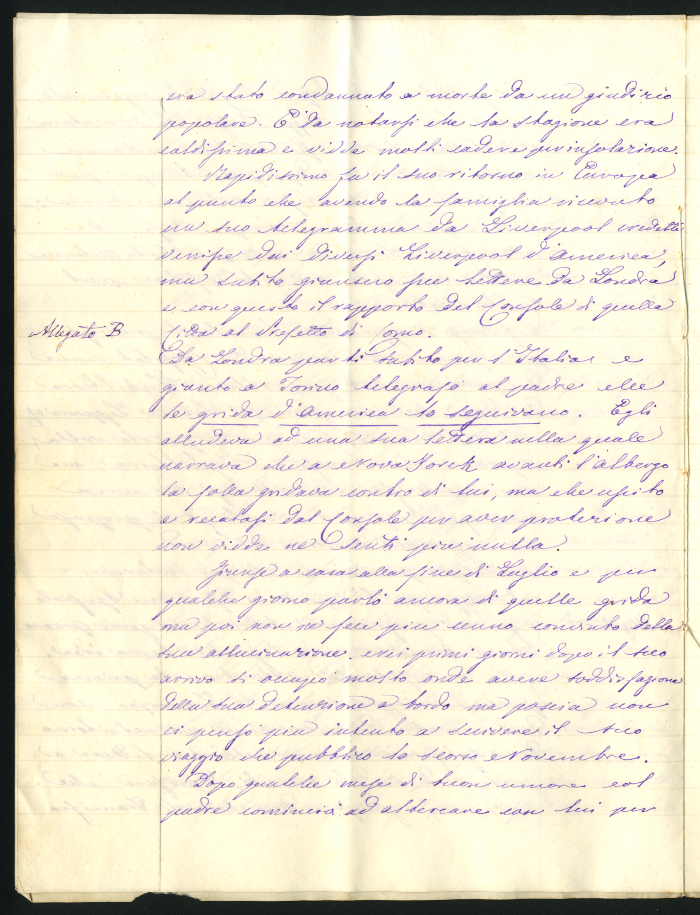 era stato condannato a morte da un giudizio
popolare. E' da notarsi che la stagione era
caldissima e vidde molti cadere per insolazione.
Rapidissimo fu il suo ritorno in Europa
al punto che avendo la famiglia ricevuto
un suo telegramma da Liverpool credette
venisse dai diversi Liverpool d'America,
ma subito giunsero sue lettere da Londra
e con queste il rapporto del Console di quella
Allegato B
Città al Prefetto di Como.
Da Londra partì subito per l'Italia e
giunto a Torino telegrafò al padre che
le grida d'America lo seguivano. Egli
alludeva ad una sua lettera nella quale
narrava che a Nova Jorck avanti l'albergo
la folla gridava contro di lui, ma che uscito
e recatosi dal Console per aver protezione
non vidde nè sentì più nulla.
Giunse a casa alla fine di Luglio e per
qualche giorno parlò ancora di quelle grida
ma poi non ne fece più cenno convinto della
sua allucinazione. Nei primi giorni dopo il suo
arrivo si occupò molto onde avere soddisfazione
della sua detenzione a bordo ma poscia non
ci pensò più intento a scrivere il suo
viaggio che pubblicò lo scorso Novembre.
Dopo qualche mese di buon umore col
padre cominciò ad altercare con lui per